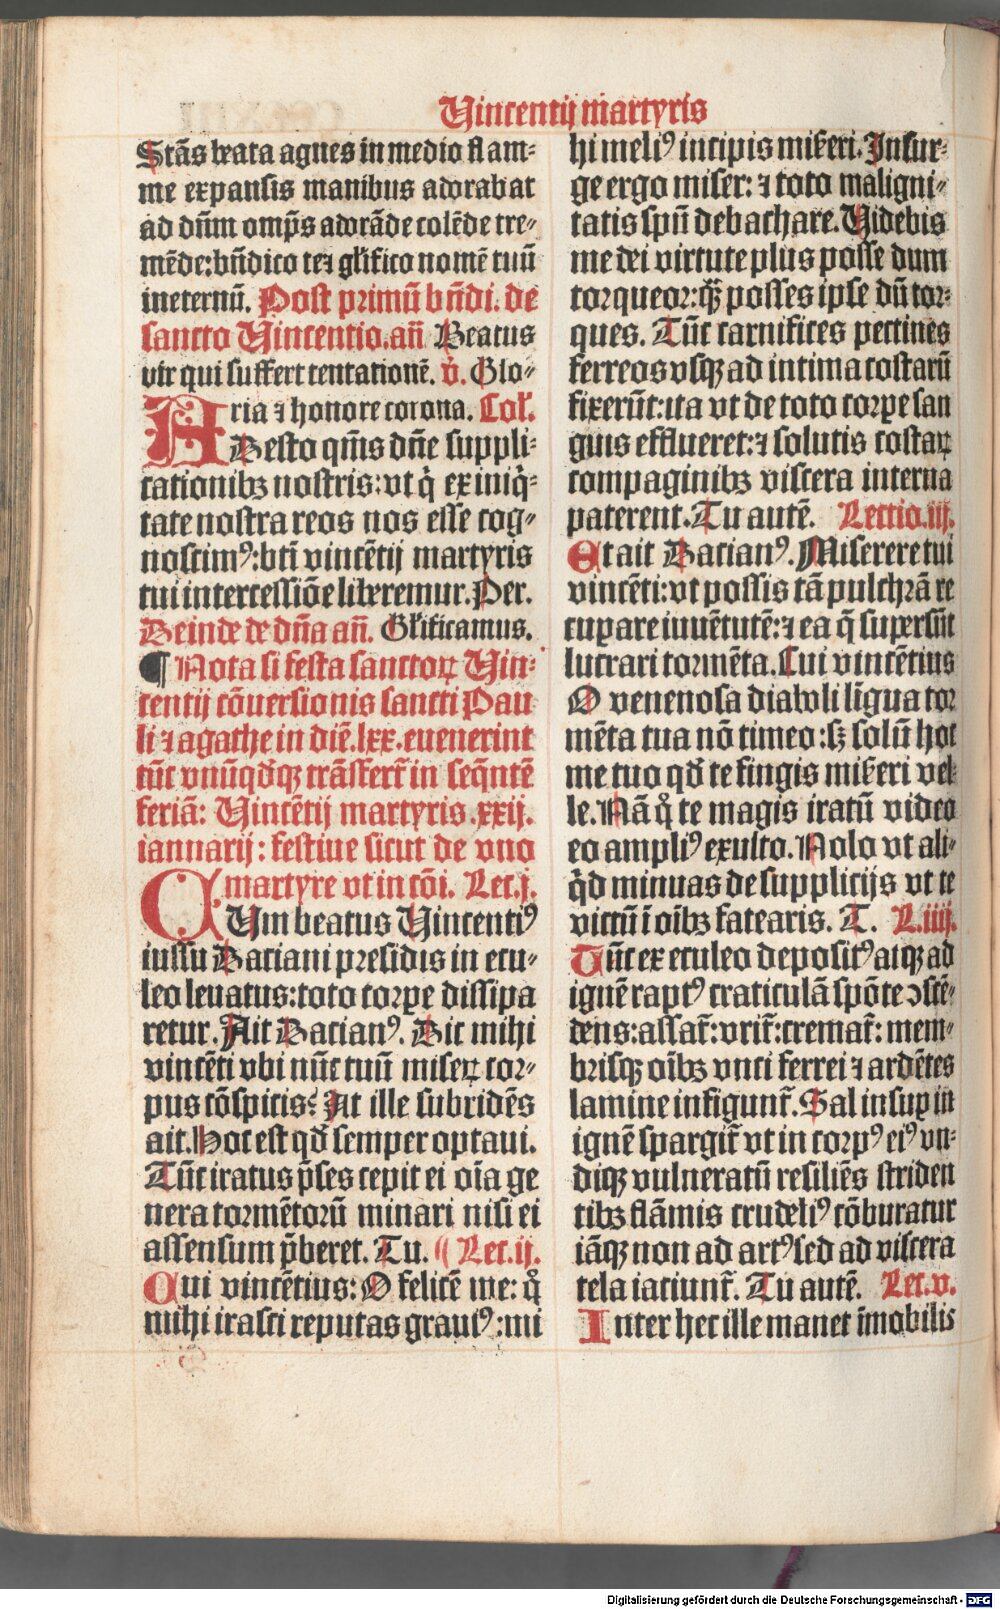 Uincentij martyris
Stãs beata agnes in medio flam⸗
me expansis manibus adorabat
ad dñm omp̃s adorãde colẽde tre⸗
mẽde: bñdico te ⁊ gl̃ifico nomẽ tuũ
ineternũ. Post primũ bñdi. de
sancto Uincentio. añ Beatus
vir qui suffert tentationẽ. v̉. Glo⸗
ria ⁊ honore corona. Col̃.
ADesto qm̃s dñe suppli⸗
cationibꝫ nostris: vt q̇ ex iniq̇⸗
tate nostra reos nos esse cog⸗
noscimꝰ: bti̅ vincẽtij martyris
tui intercessiõe liberemur. Per.
Deinde de dña añ. Gl̃ificamus.
¶ Nota si festa sanctoꝝ Uin⸗
centij cõuersionis sancti Pau
li ⁊ agathe in diẽ .lxx. euenerint
tũc vnũqďqꝫ trãsfert̃ in seq̃ntẽ
feriã: Uincẽtij martyris .xxij.
ianuarij: festiue sicut de vno
martyre vt in cõi. Lec. j.
CUm beatus Uincentiꝰ
iussu Daciani presidis in ecu⸗
leo leuatus: toto corꝑe dissipa
retur. Ait Dacianꝰ. Dic mihi
vincẽti vbi nũc tuũ miseꝝ cor⸗
pus cõspicis? At ille subridẽs
ait. Hoc est qď semper optaui.
Tũc iratus p̃ses cepit ei oĩa ge
nera tormẽtorũ minari nisi ei
assensum p̃beret. Tu. Lec. ij.
Cui vincẽtius: O felicẽ me: q̊
mihi irasci reputas grauiꝰ: mi
hi meliꝰ incipis mis̃eri. Insur⸗
ge ergo miser: ⁊ toto maligni⸗
tatis spũ debachare. Uidebis
me dei virtute plus posse dum
torqueor: q̃ꝫ posses ipse dũ tor⸗
ques. Tũc carnifices pectines
ferreos vsqꝫ ad intima costarũ
fixerũt: ita vt de toto corꝑe san
guis efflueret: ⁊ solutis costaꝝ
compaginibꝫ viscera interna
paterent. Tu autẽ. Lectio. iij.
Et ait Dacianꝰ. Miserere tui
vincẽti: vt possis tã pulchrã re
cuꝑare iuuẽtutẽ: ⁊ ea q̃ supersũt
lucrari tormẽta. Cui vincẽtius
O venenosa diaboli lĩgua tor
mẽta tua nõ timeo: sꝫ solũ hoc
me tuo qď te fingis mis̃eri vel
le. Nã q̊ te magis iratũ video
eo ampliꝰ exulto. Nolo vt ali⸗
q̇d minuas de supplicijs vt te
victũ ĩ oĩbꝫ fatearis. T. L. iiij.
Tũc ex eculeo depositꝰ atqꝫ ad
ignẽ raptꝰ craticulã spõte ↄscẽ⸗
dens: assat̃: vrit̃: cremat̃: mem⸗
brisqꝫ oĩbꝫ vnci ferrei ⁊ ardẽtes
lamine infigunt̃. Sal insuꝑ in
ignẽ spargit̃ vt in corpꝰ eiꝰ vn⸗
diqꝫ vulneratũ resiliẽs striden
tibꝫ flãmis crudeliꝰ cõburatur
iãqꝫ non ad artꝰ sed ad viscera
tela iaciunt̃. Tu autẽ. Lec. v.
Inter hec ille manet ĩmobilis
Digitalisierung gefördert durch die Deutsche Forschungsgemeinschaft - DFG